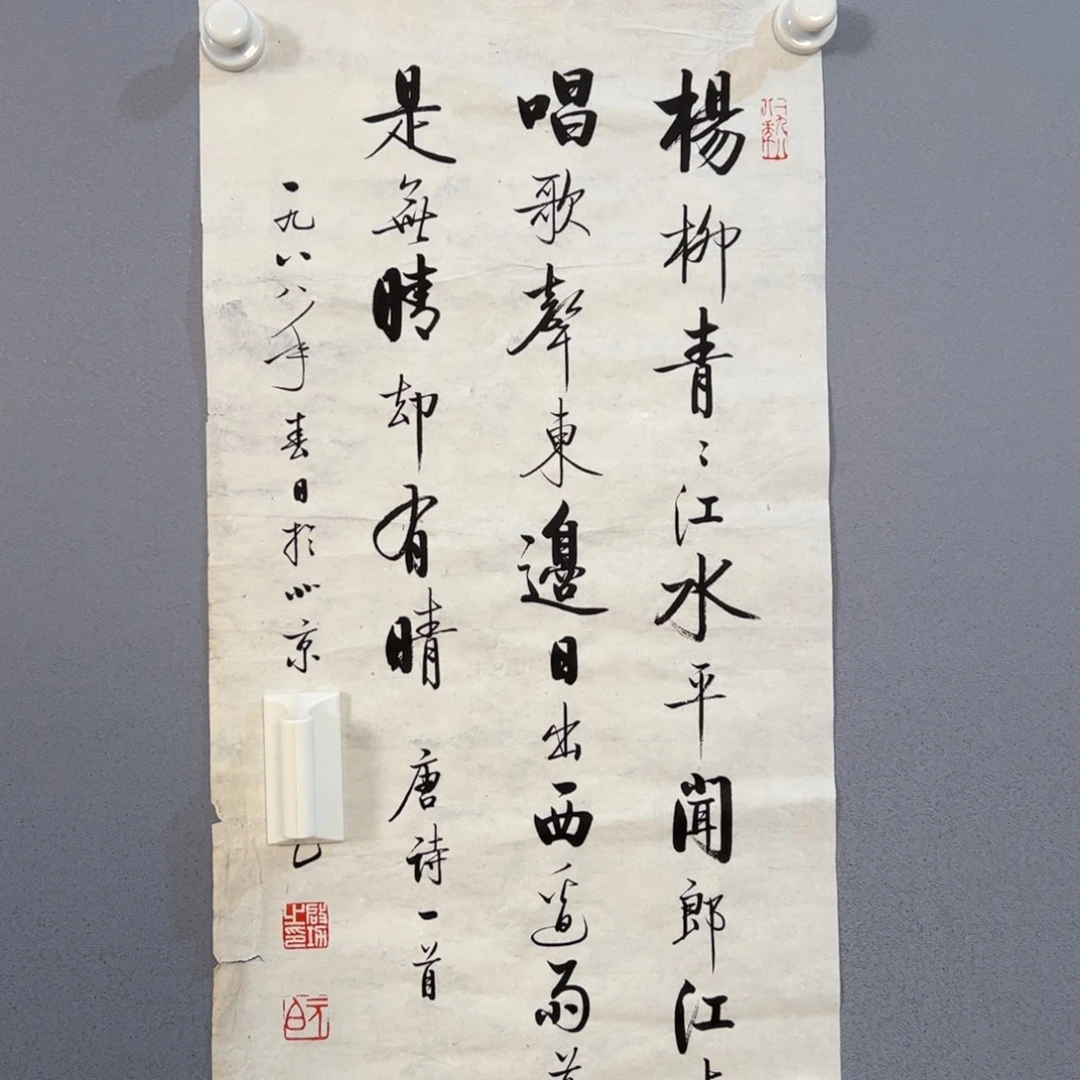 楊柳青〻江水平聞郎江
唱歌聲東邊日出西邊雨
是無晴却有晴 唐詩一首
一九八八年春日於北京
啓功之印
元白